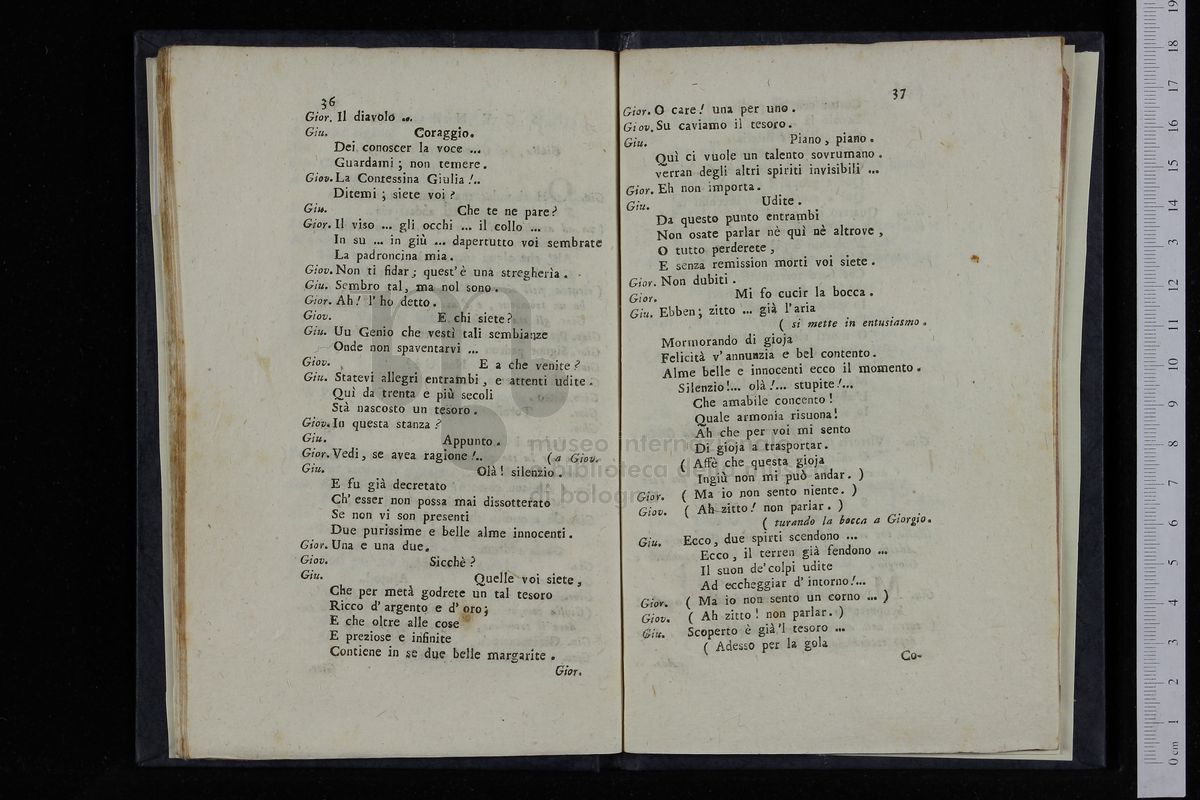 36
Gior. Il diavolo ...
Giu. Coraggio.
Dei conoscer la voce ...
Guardami ; non temere.
Giov. La Contessina Giulia !..
Ditemi ; siete voi ?
Giu. Che te ne pare ?
Gior. Il viso ... gli occhi ... il collo ...
In su ... in giù ... dapertutto voi sembrate
La padroncina mia.
Giov. Non ti fidar ; quest' è una stregheria.
Giu. Sembro tal, ma nol sono.
Gior. Ah ! l' ho detto.
Giov. E chi siete ?
Giu. Uu Genio che vestì tali sembianze
Onde non spaventarvi ...
Giov. E a che venite ?
Giu. Statevi allegri entrambi , e attenti udite.
Quì da trenta e più secoli
Stà nascosto un tesoro.
Giov. In questa stanza ?
Giu. Appunto.
Gior. Vedi , se avea ragione !.. ( a Giov.
Giu. Olà ! silenzio.
E fu già decretato
Ch' esser non possa mai dissotterato
Se non vi son presenti
Due purissime e belle alme innocenti.
Gior. Una e una due.
Giov. Sicchè ?
Giu. Quelle voi siete ,
Che per metà godrete un tal tesoro
Ricco d' argento e d' oro ;
E che oltre alle cose
E preziose e infinite
Contiene in se due belle margarite.
Gior.
37
Gior. O care ! una per uno.
Giov. Su caviamo il tesoro.
Giu. Piano , piano.
Quì ci vuole un talento sovrumano.
verran degli altri spiriti invisibili ...
Gior. Eh non importa.
Giu. Udite.
Da questo punto entrambi
Non osate parlar nè quì nè altrove ,
O tutto perderete ,
E senza remission morti voi siete.
Gior. Non dubiti.
Gior. Mi fo cucir la bocca.
Giu. Ebben ; zitto ... già l'aria
( si mette in entusiasmo.
Mormorando di gioja
Felicità v' annunzia e bel contento.
Alme belle e innocenti ecco il momento.
Silenzio !... olà !... stupite !...
Che amabile concento !
Quale armonia risuona !
Ah che per voi mi sento
Di gioja a trasportar.
( Affè che questa gioja
Ingiù non mi può andar. )
Gior. ( Ma io non sento niente. )
Giov. ( Ah zitto ! non parlar. )
( turando la bocca a Giorgio.
Giu. Ecco, due spirti scendono ...
Ecco , il terren già fendono ...
Il suon de' colpi udite
Ad eccheggiar d' intorno !...
Gior. ( Ma io non sento un corno ... )
Giov. ( Ah zitto ! non parlar. )
Giu. Scoperto è già 'l tesoro ...
( Adesso per la gola
Co-
museo internazionale
biblioteca della musica
di bologna
0 cm 1 2 3 4 5 6 7 8 9 10 11 12 13 14 15 16 17 18 19